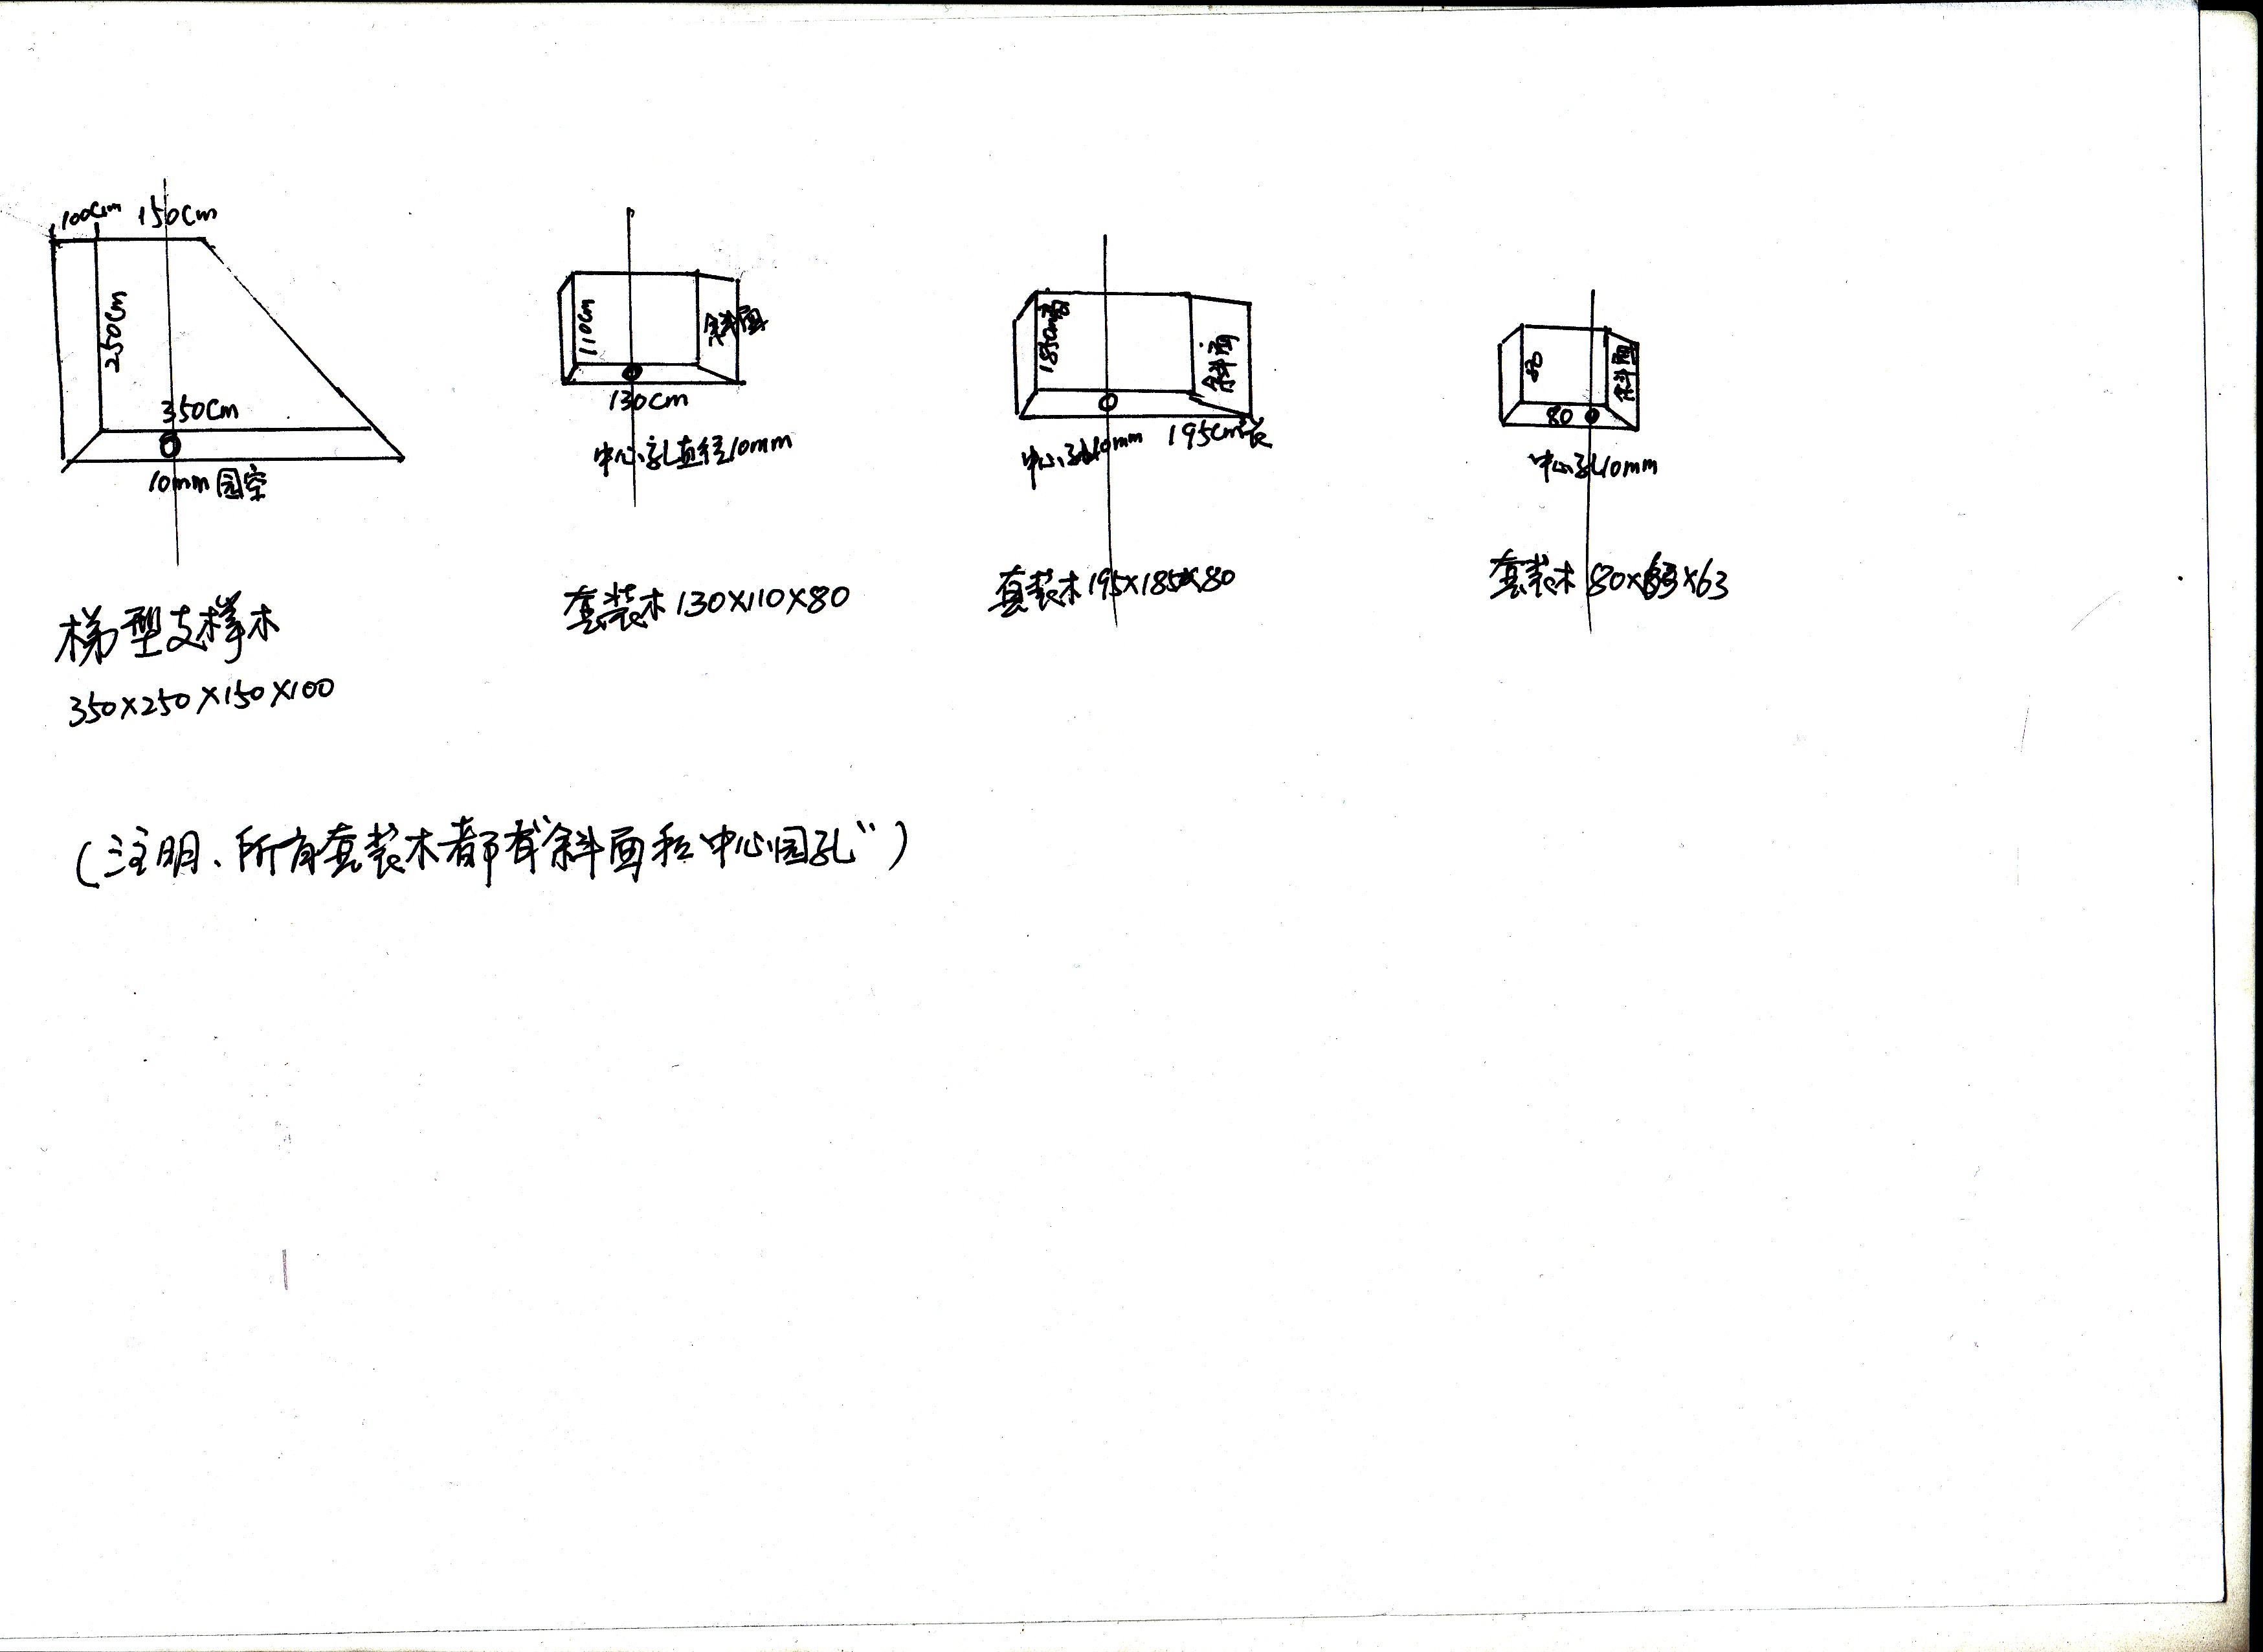 100cm 150cm
250cm
350cm
10mm园空
梯型支撑木
350×250×150×100
110cm
斜面
130cm
中心孔直径10mm
套装木130×110×80
185cm高
斜面
195cm长
中心孔10mm
套装木195×185×80
斜面
80
中心孔10mm
套装木80×63×63
(注明、所有套装木都有"斜面和"中心园孔")